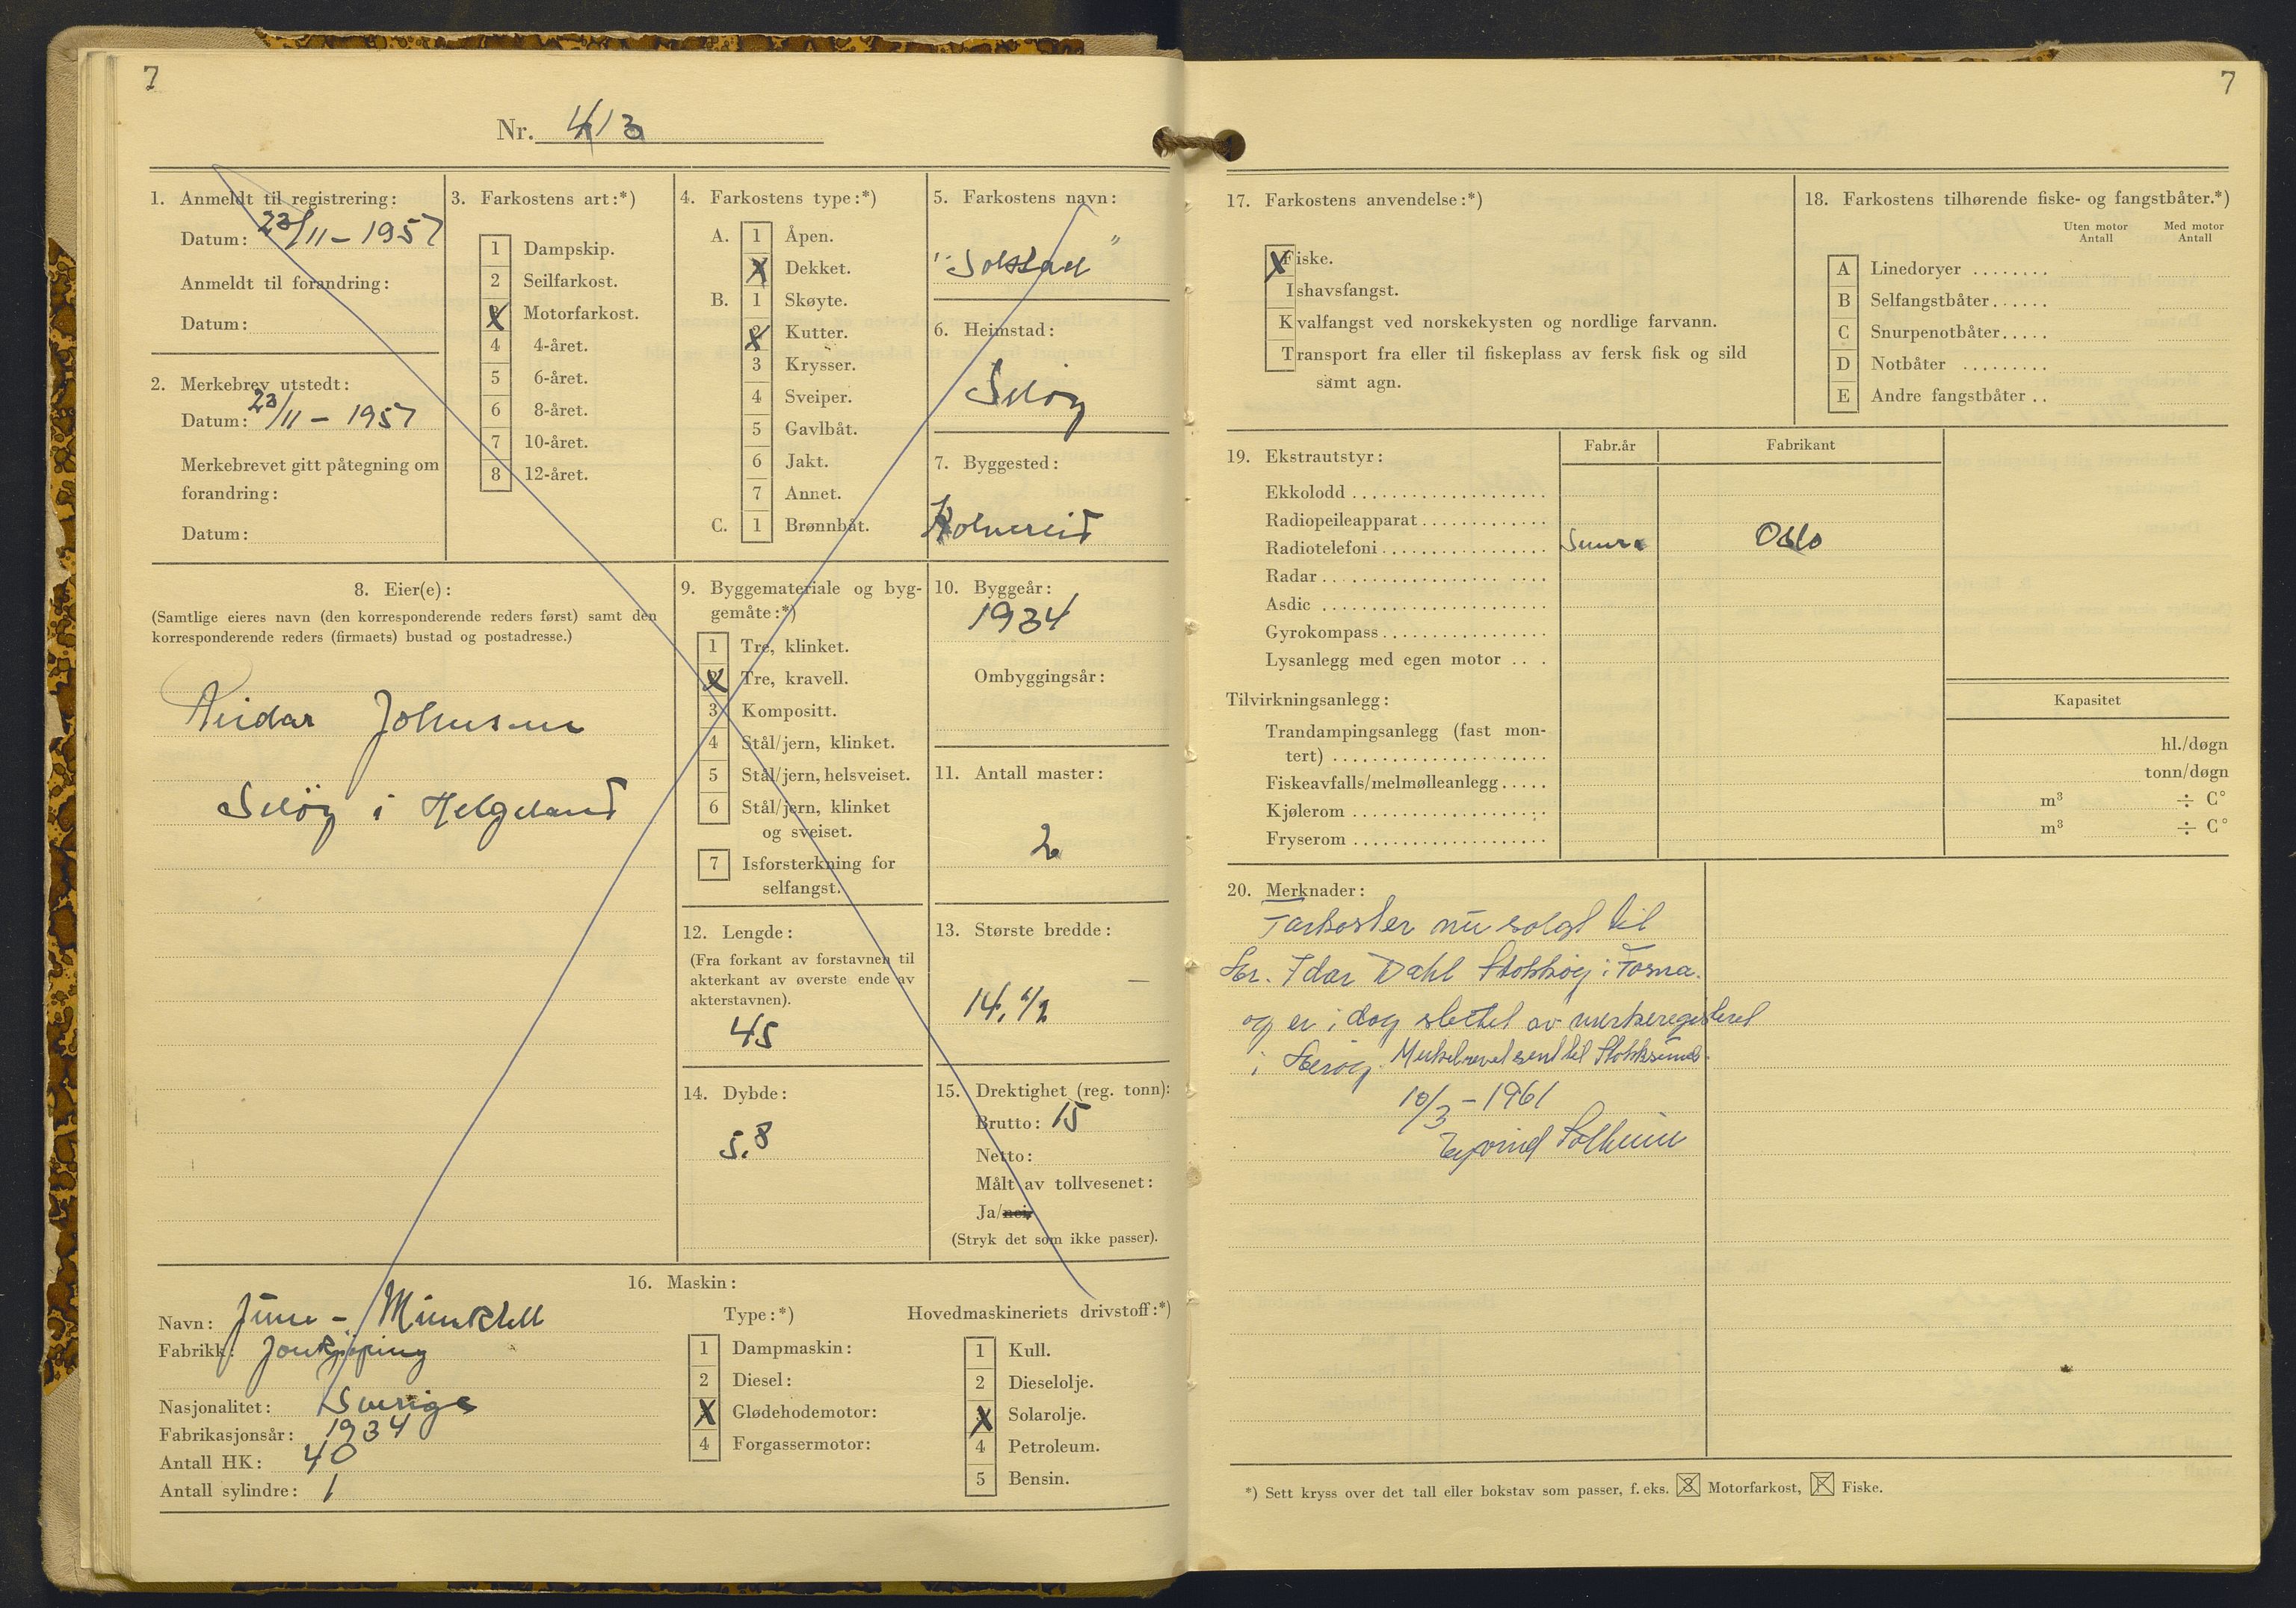 7
Nr. 413
1. Anmeldt til registrering:
Datum: 23/11 - 1957
Anmeldt til forandring:
Datum:
2. Merkebrev utstedt:
Datum: 23/11 - 1957
Merkebrevet gitt påtegning om
forandring:
Datum:
3. Farkostens art:*)
1 Dampskip.
2 Seilfarkost.
X Motorfarkost.
4 4-året.
5 6-året.
6 8-året.
7 10-året.
8 12-året.
4. Farkostens type:*)
A. 1 Åpen.
X Dekket.
B. 1 Skøyte.
X Kutter.
3 Krysser.
4 Sveiper.
5 Gavlbåt.
6 Jakt.
7 Annet.
C. 1 Brønnbåt.
5. Farkostens navn:
"Solstad"
6. Heimstad:
Seløy
7. Byggested:
Kolvereid
8. Eier(e):
(Samtlige eieres navn (den korresponderende reders først) samt den
korresponderende reders (firmaets) bustad og postadresse.)
Reidar Johnsen
Seløy i Helgeland
9. Byggemateriale og byg-
gemåte:*)
1 Tre, klinket.
X Tre, kravell.
3 Kompositt.
4 Stål/jern, klinket.
5 Stål/jern, helsveiset.
6 Stål/jern, klinket
og sveiset.
7 Isforsterkning for
selfangst.
10. Byggeår:
1934
Ombyggingsår:
11. Antall master:
2
12. Lengde:
(Fra forkant av forstavnen til
akterkant av øverste ende av
akterstavnen).
45
13. Største bredde:
14,1/2
14. Dybde:
5.8
15. Drektighet (reg. tonn):
Brutto: 15
Netto:
Målt av tollvesenet:
Ja/nei
(Stryk det som ikke passer).
16. Maskin:
Navn: June - Munktell
Fabrikk: Jonkjøping
Nasjonalitet: Sverige
Fabrikasjonsår: 1934
Antall HK: 40
Antall sylindre: 1
Type:*)
1 Dampmaskin:
2 Diesel:
X Glødehodemotor:
4 Forgassermotor:
Hovedmaskineriets drivstoff:*)
1 Kull.
2 Dieselolje.
X Solarolje.
4 Petroleum.
5 Bensin.
7
17. Farkostens anvendelse:*)
Fiske.
Ishavsfangst.
Kvalfangst ved norskekysten og nordlige farvann.
Transport fra eller til fiskeplass av fersk fisk og sild
samt agn.
18. Farkostens tilhørende fiske- og fangstbåter.*)
Uten motor Antall
Med motor Antall
A Linedoryer ........
B Selfangstbåter......
C Snurpenotbåter.....
D Notbåter .........
E Andre fangstbåter ..
19. Ekstrautstyr:
Fabr.år
Fabrikant
Ekkolodd
Radiopeileapparat
Radiotelefoni Oslo
Radar
Asdic
Gyrokompass
Lysanlegg med egen motor
Tilvirkningsanlegg:
Kapasitet
Trandampingsanlegg (fast mon-
tert) hl./døgn
Fiskeavfalls/melmølleanlegg..... tonn/døgn
Kjølerom m³ ÷ C°
Fryserom m³ ÷ C°
20. Merknader:
Farkosten nu solgt til
Hr. Idar Dahl Stokkøy i Fosna.
og er i dag slettet av merkeregisteret
i Herøy. Merkebrevet sent til Stokksund.
10/3 - 1961
Eyvind Solheim
*) Sett kryss over det tall eller bokstav som passer, f. eks. 3 Motorfarkost, F Fiske.